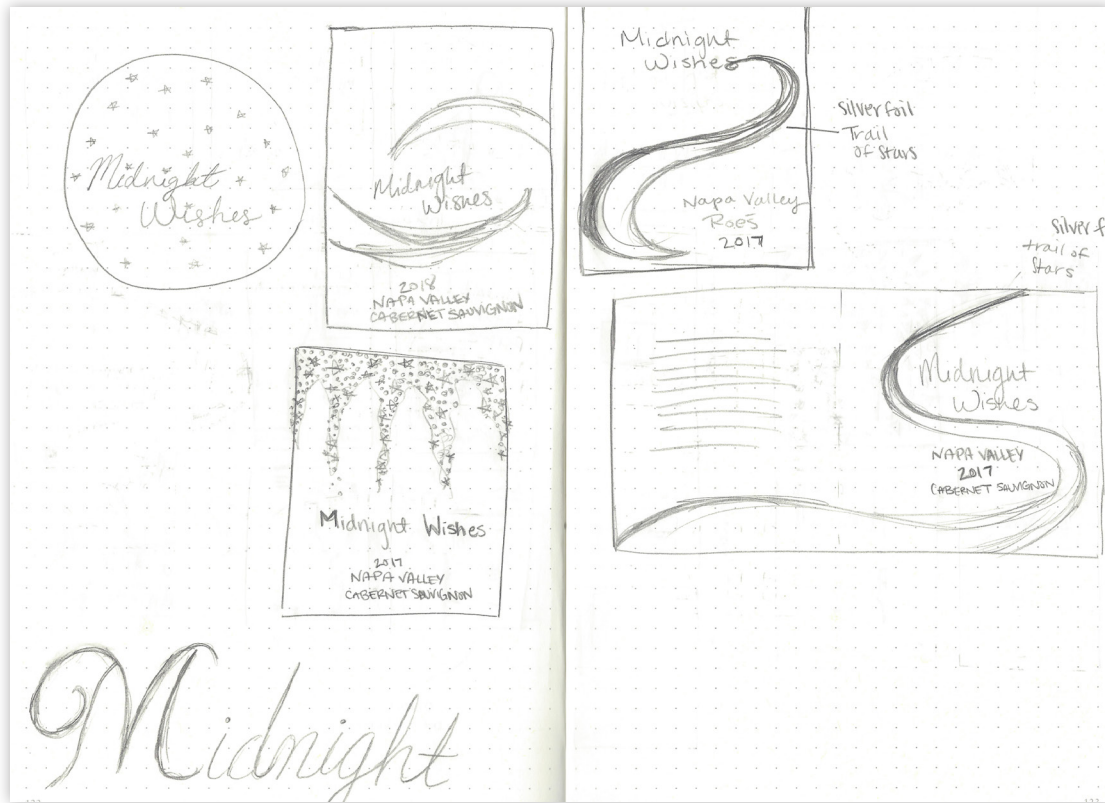 Midnight
Wishes
Midnight
Wishes
2018
NAPA VALLEY
CABERNET SAUVIGNON
Midnight Wishes
2017
NAPA VALLEY
CABERNET SAUVIGNON
Midnight
Midnight
Wishes
Silver foil
Trail
of Stars
Napa Valley
Roes
2017
Silver f
trail of
Stars
Midnight
Wishes
NAPA VALLEY
2017
CABERNET SAUVIGNON